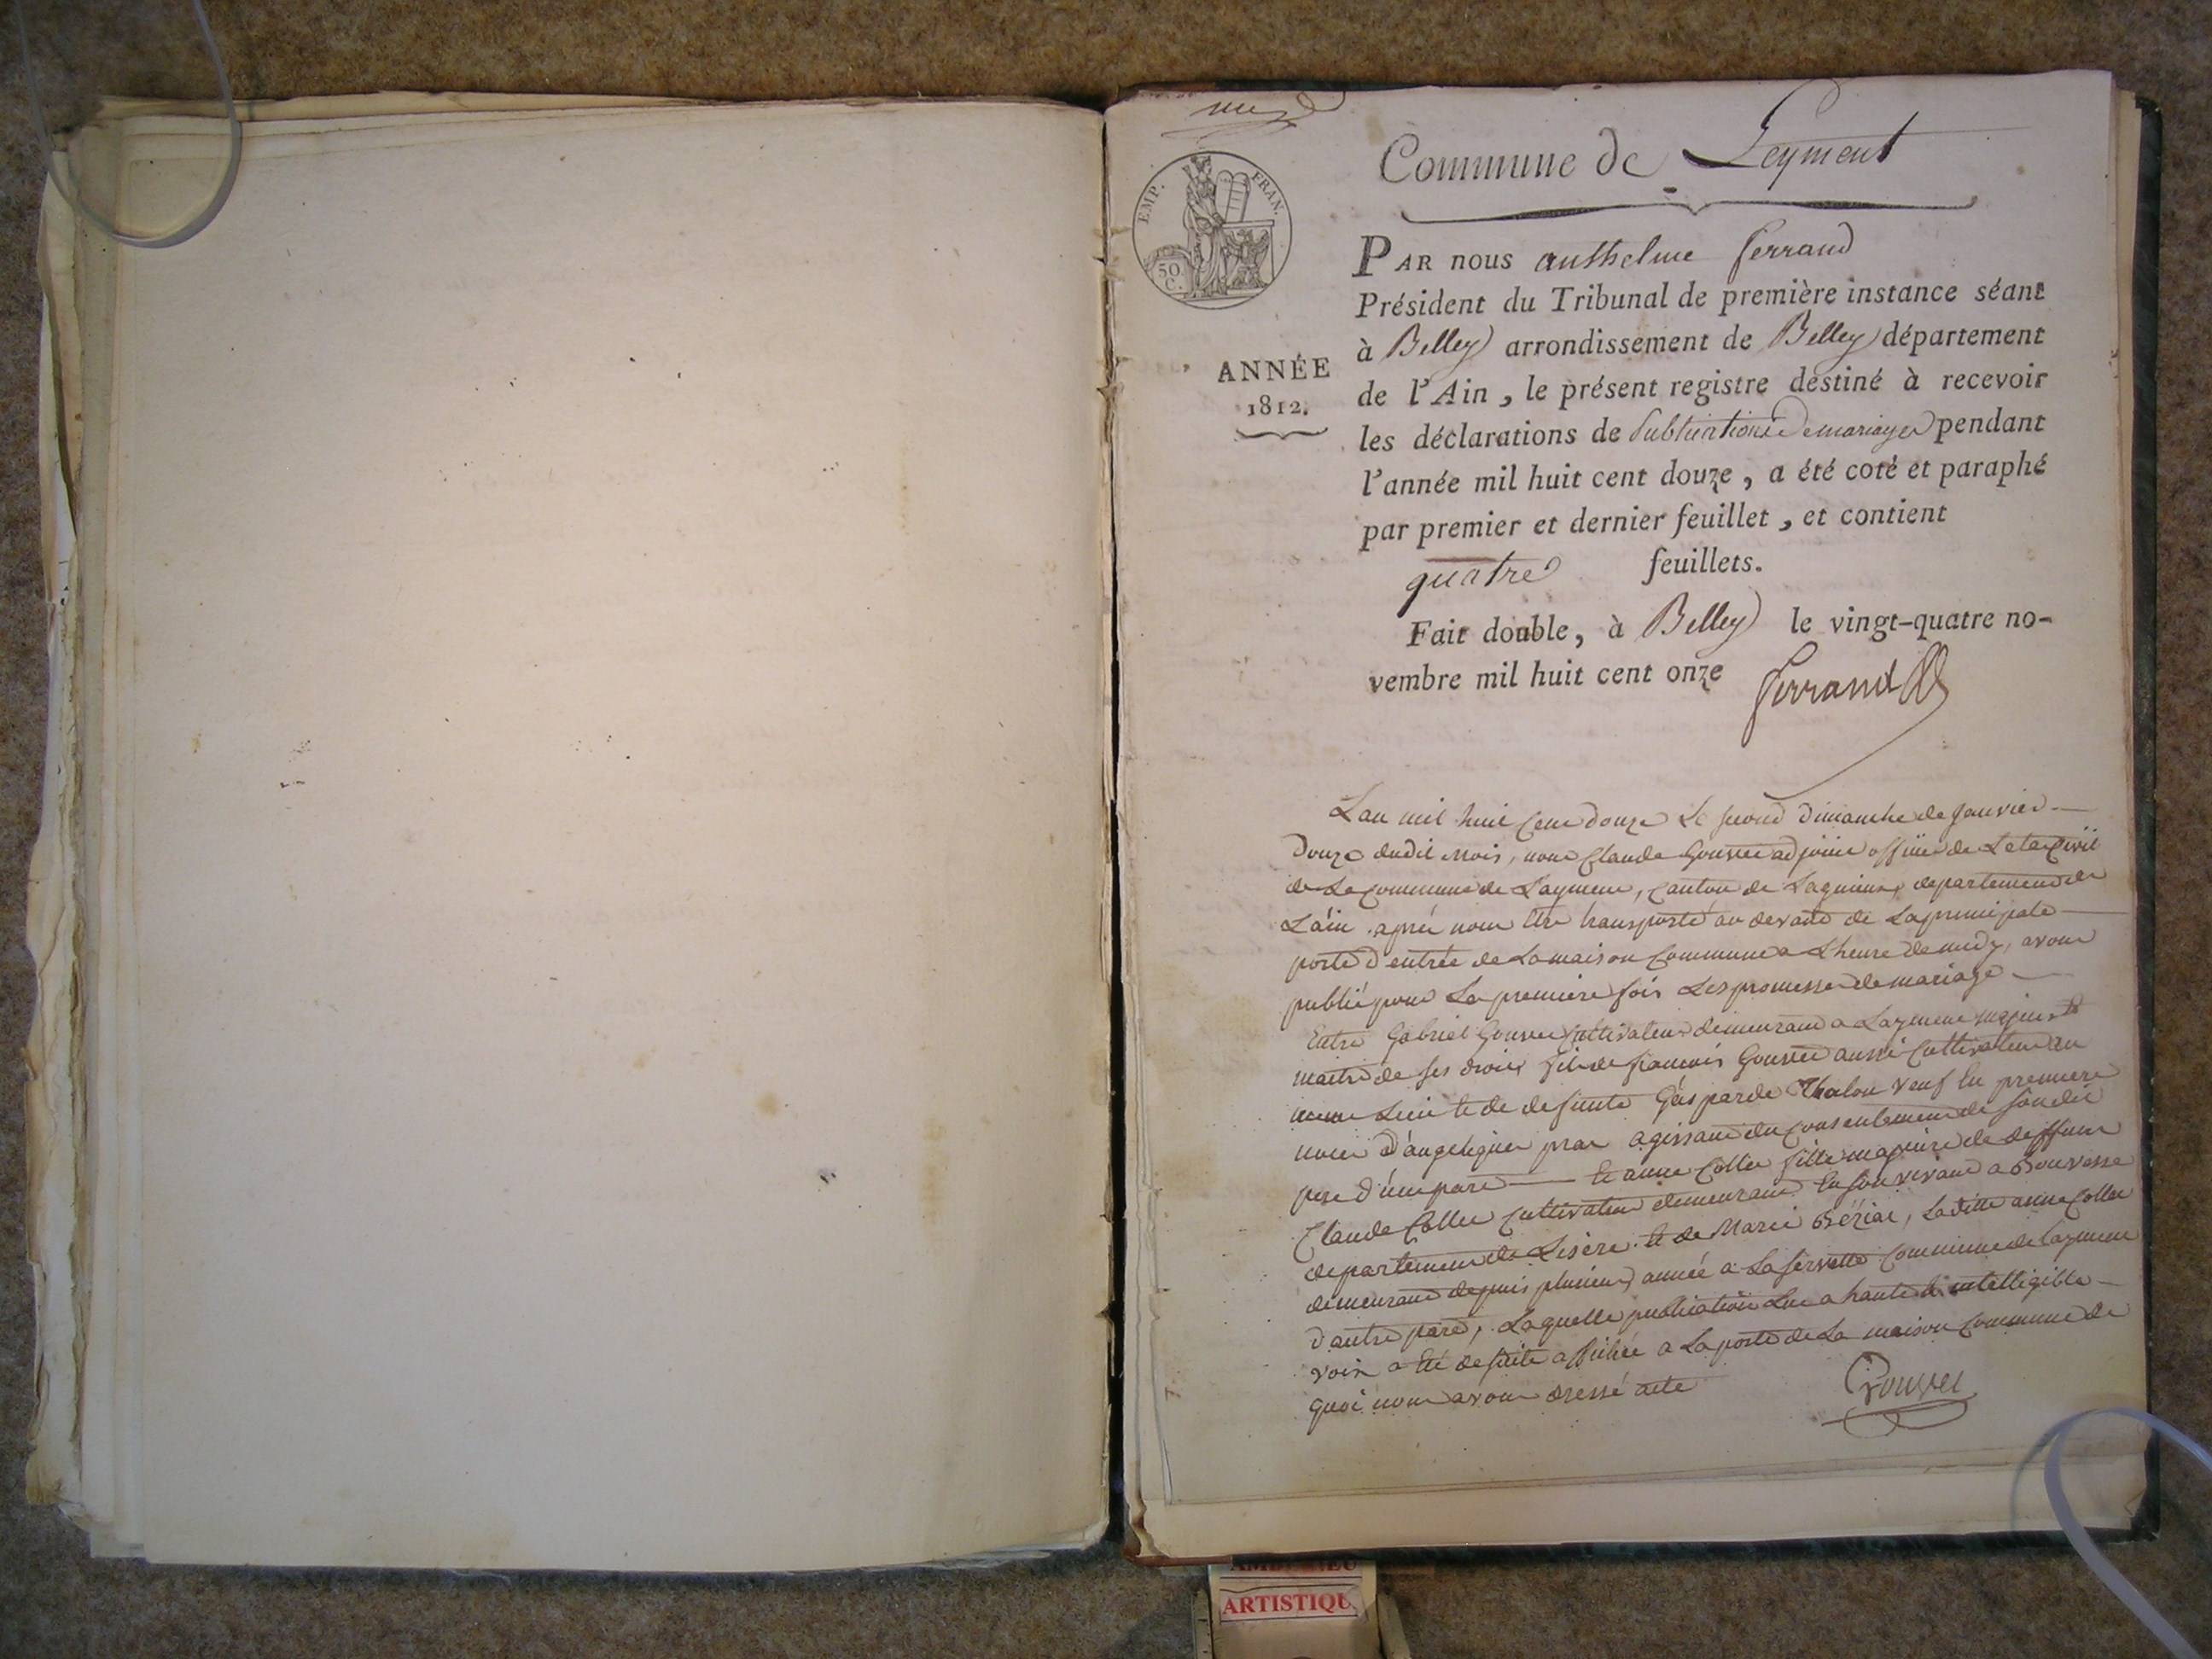 Commune de Leyment
EMP. FRAN.
50 C.
PAR nous anthelme ferrand
Président du Tribunal de première instance séant
à Belley arrondissement de Belley département
ANNÉE
1812.
de l'Ain , le présent registre destiné à recevoir
les déclarations de de mariages pendant
l'année mil huit cent douze , a été coté et paraphé
par premier et dernier feuillet , et contient
quatre feuillets.
Fait double, à Belley le vingt-quatre no-
vembre mil huit cent onze ferrand
Lan mil huit Cent douze Le second dimanche de Janvier
douze dudit mois, nous Claude Gouvet adjoint officier de Letat Civil
de La Commune de Layment, Canton de Lagnieux departement de
Láin . après nous être transporté au devant de La principale
porte d'entrée de La maison Commune a L'heure de midy, avons
publié pour La premiere fois Les promesses de mariage
Entre Gabriel Gouvet Cultivateur demeurant a Layment majeur et
maitre de ses droits fils de françois Gouvet aussi Cultivateur au
même Lieu et de defunte Gásparde veuf En premiere
noces d'angelique agissant du Consentement de son dit
pere d'une part et anne Collet fille majeure de deffunt
Claude Collet Cultivateur demeurant En son vivant a Bouvesse
departement de Lisère et de Marie Béziat, La ditte anne Collet
demeurant depuis plusieurs année a La servette Commune de Layment
d'autre part, Laquelle publication Lue a haute et intelligible
voix a été de suite affichée a La porte de La maison Commune de
quoi nous avons dressé acte Gouvet
ARTISTIQU